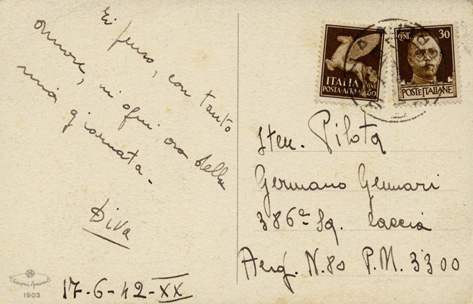 Ti penso, con tanto
amore, in ogni ora della
mia giornata -
Diva
17-6-42-XX
1903
ITALIA
POSTA AEREA
30
POSTE ITALIANE
Sten. Pilota
Germano Gennari
386ª Sq. Caccia
Aerop. N.80 P.M. 3300